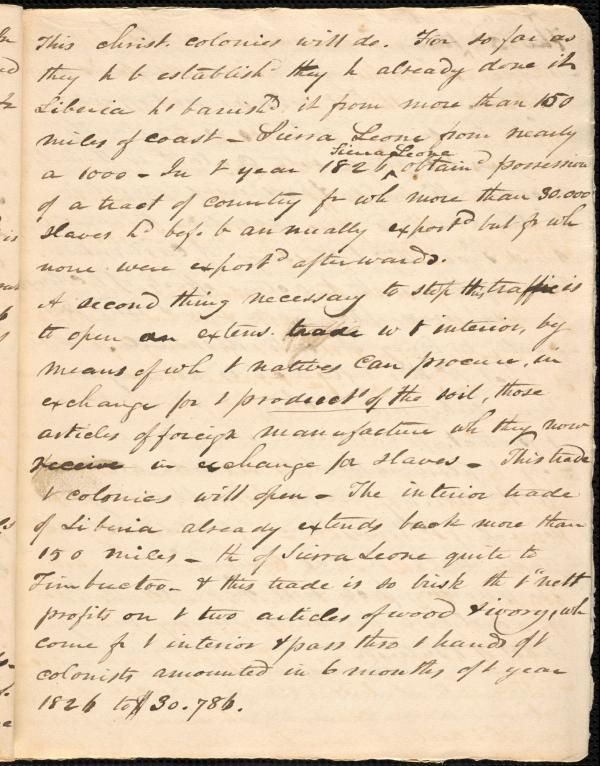 This christ. colonies will do. For so far as
they h b establishd they h already done it
Liberia hs banishd it from more than 150
miles of coast – Sierra Leone from nearly
a 1000 – In t year 1826 ^ Sierra Leone obtaind possession
of a tract of country fr wh more than 30.000
slaves hd befo. b annually exportd but fr wh
none were exportd afterwards.
A second thing necessary to stop this traffic is
to open an extens. trade w t interior, by
means of wh t natives can procure, in
exchange for t products of the soil, those
articles of foreign manufacture wh they now
receive in exchange for slaves – This trade
t colonies will open – The interior trade
of Liberia already extends back more than
150 miles – th of Sierra Leone quite to
Timbuctoo – & this trade is so brisk th t "nett
profits on t two articles of wood & ivory, wh
come fr t interior & pass thro t hands of t
colonists amounted in 6 months of t year
1826 to $30.786.